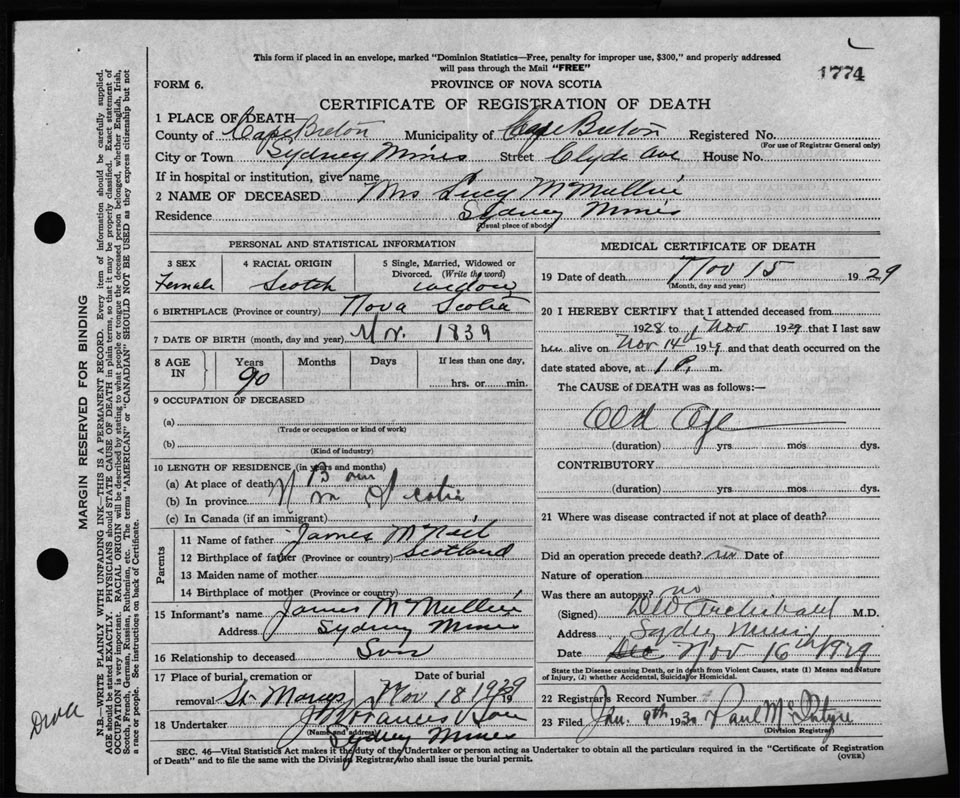 This form if placed in an envelope, marked "Dominion Statistics—Free, penalty for improper use, $300," and properly addressed
will pass through the Mail "FREE"
1774
FORM 6.
PROVINCE OF NOVA SCOTIA
CERTIFICATE OF REGISTRATION OF DEATH
1 PLACE OF DEATH
County of Cape Breton Municipality of Cape Breton Registered No.
(For use of Registrar General only)
City or Town Sydney Mines Street Clyde Ave House No.
If in hospital or institution, give name
2 NAME OF DECEASED Mrs Lucy McMullin
Residence Sydney Mines
(Usual place of abode)
PERSONAL AND STATISTICAL INFORMATION
3 SEX 4 RACIAL ORIGIN 5 Single, Married, Widowed or
Divorced. (Write the word)
Female Scotch widow
6 BIRTHPLACE (Province or country) Nova Scotia
7 DATE OF BIRTH (month, day and year) 1839
8 AGE IN Years Months Days If less than one day,
90 hrs. or min.
9 OCCUPATION OF DECEASED
(a)
(Trade or occupation or kind of work)
(b)
(Kind of industry)
10 LENGTH OF RESIDENCE (in years and months)
(a) At place of death
(b) In province
(c) In Canada (if an immigrant)
Parents
11 Name of father James McNeil
12 Birthplace of father (Province or country) Scotland
13 Maiden name of mother
14 Birthplace of mother (Province or country)
15 Informant's name James McMullin
Address Sydney Mines
16 Relationship to deceased Son
17 Place of burial, cremation or Date of burial
removal St. Nov 18 1929 19
18 Undertaker
(Name and address)
Sydney Mines
MEDICAL CERTIFICATE OF DEATH
19 Date of death Nov 15 1929
(Month, day and year)
20 I HEREBY CERTIFY that I attended deceased from
1928 to Nov 1929 that I last saw
her alive on Nov 14th 1929 and that death occurred on the
date stated above, at 1 P. m.
The CAUSE of DEATH was as follows:—
Old Age
(duration) yrs mos dys.
CONTRIBUTORY
(duration) yrs mos dys.
21 Where was disease contracted if not at place of death?
Did an operation precede death? Date of
Nature of operation
Was there an autopsy? no
(Signed) Archibald M.D.
Address Sydney Mines
Date Nov 16th 1929
State the Disease causing Death, or in death from Violent Causes, state (1) Means and Nature
of Injury, (2) whether Accidental, Suicidal or Homicidal.
22 Registrar's Record Number
23 Filed Jan. 9th 1930 Paul McIntyre
(Division Registrar)
SEC. 46—Vital Statistics Act makes it the duty of the Undertaker or person acting as Undertaker to obtain all the particulars required in the "Certificate of Registration
of Death" and to file the same with the Division Registrar who shall issue the burial permit.
(OVER)
MARGIN RESERVED FOR BINDING
N.B.—WRITE PLAINLY WITH UNFADING INK—THIS IS A PERMANENT RECORD. Every item of information should be carefully supplied.
AGE should be stated EXACTLY. PHYSICIANS should STATE CAUSE OF DEATH in plain terms, so that it may be properly classified. Exact statement of
OCCUPATION is very important. RACIAL ORIGIN will be described by stating to what people or tongue the deceased person belonged, whether English, Irish,
Scotch, French, German, Russian, Ruthenian, etc. The terms "AMERICAN" or "CANADIAN" SHOULD NOT BE USED as they express citizenship but not
a race or people. See instructions on back of Certificate.